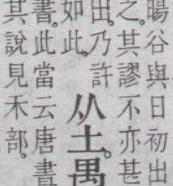 暘谷與日初出
之。其謬不亦甚
乃許
如此。
从土禺
書。此當云唐書
其說見禾部。